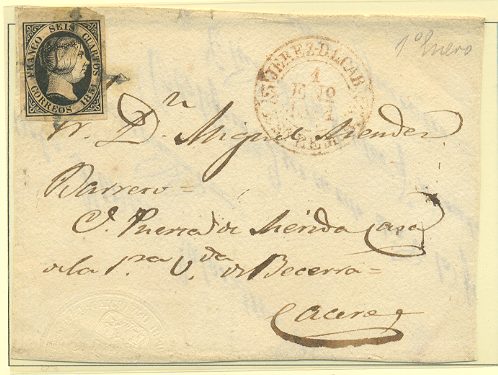 FRANCO SEIS CUARTOS
CORREOS 1851
JEREZ-D-LA-CAB
1
1º Enero
Sr. Dn. Miguel Mendez
Barrero=
C. Puerta de Mérida Casa
de la pra. Vda. de Becerra=
Caceres